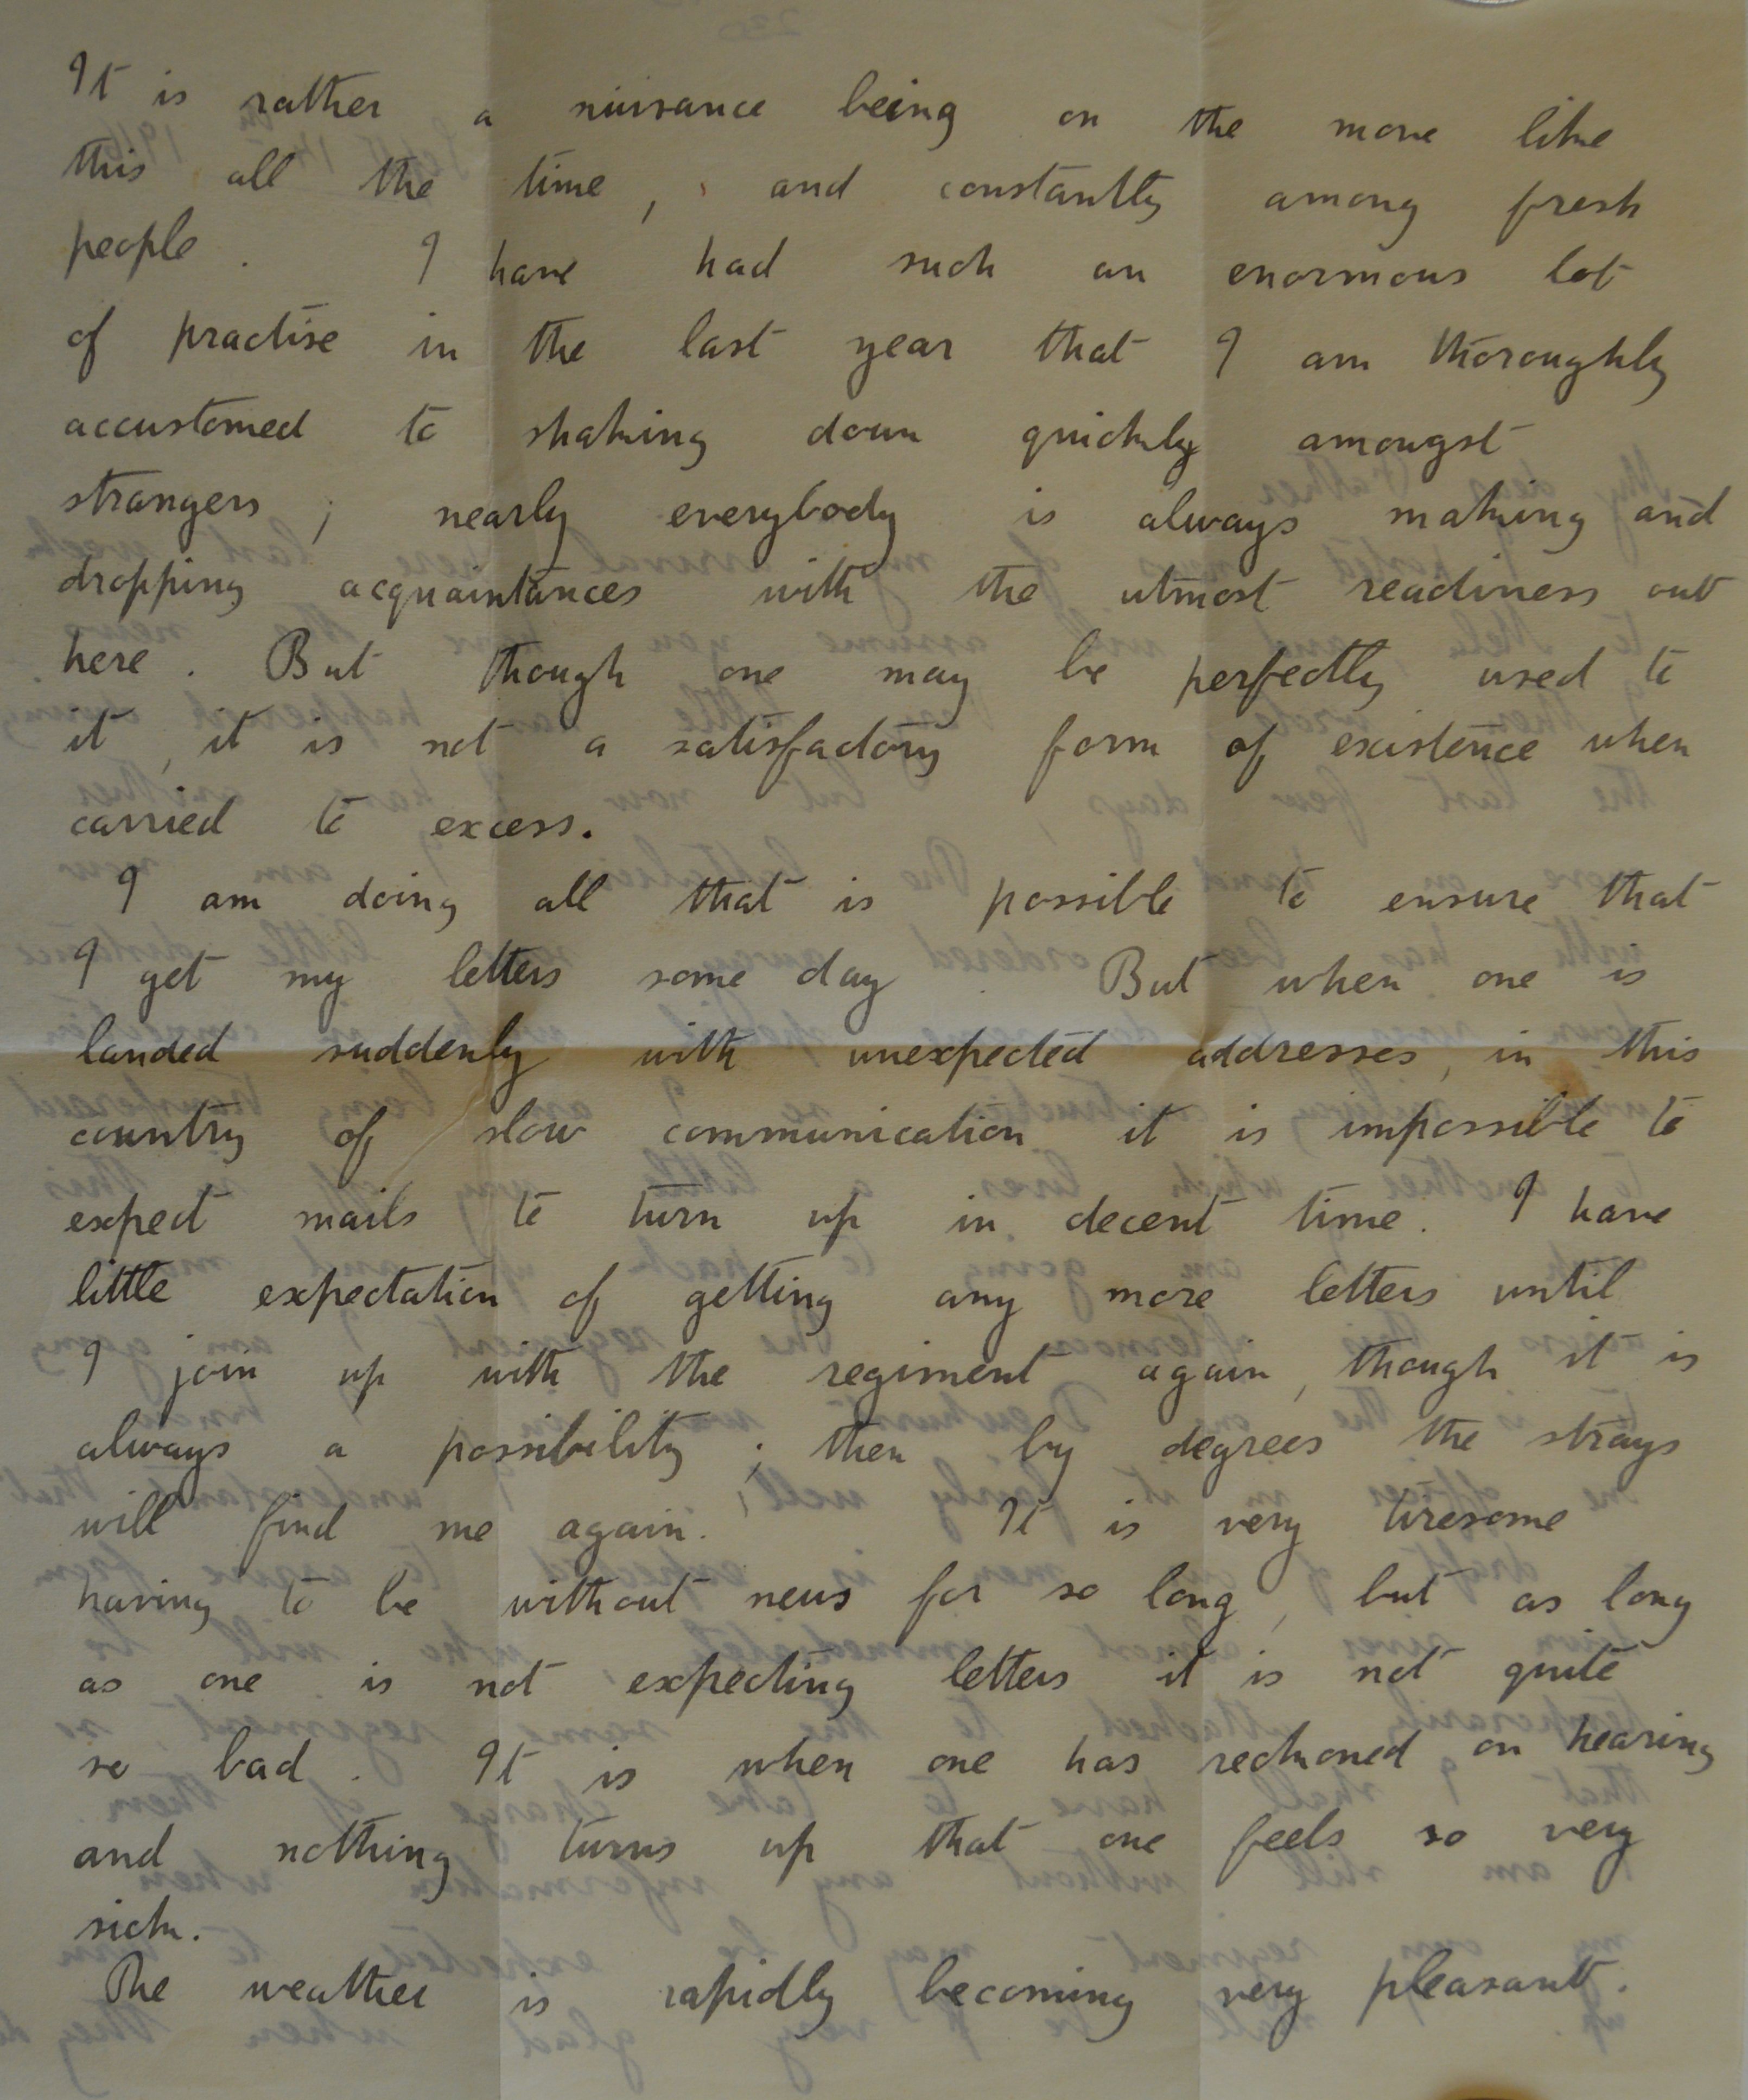 It is rather a nuisance being on the move like
this all the time, and constantly among fresh
people. I have had such an enormous lot
of practise in the last year that I am thoroughly
accustomed to shaking down quickly amongst
strangers; nearly everybody is always making and
dropping acquaintances with the utmost readiness out
here. But though one may be perfectly used to
it, it is not a satisfactory form of existence when
carried to excess.
I am doing all that is possible to ensure that
I get my letters some day. But when one is
landed suddenly with unexpected addresses, in this
country of slow communication it is impossible to
expect mails to turn up in decent time. I have
little expectation of getting any more letters until
I join up with the regiment again, though it is
always a possibility; then by degrees the strays
will find me again. It is very tiresome
having to be without news for so long, but as long
as one is not expecting letters it is not quite
so bad. It is when one has reckoned on hearing
and nothing turns up that one feels so very
sick.
The weather is rapidly becoming very pleasant.